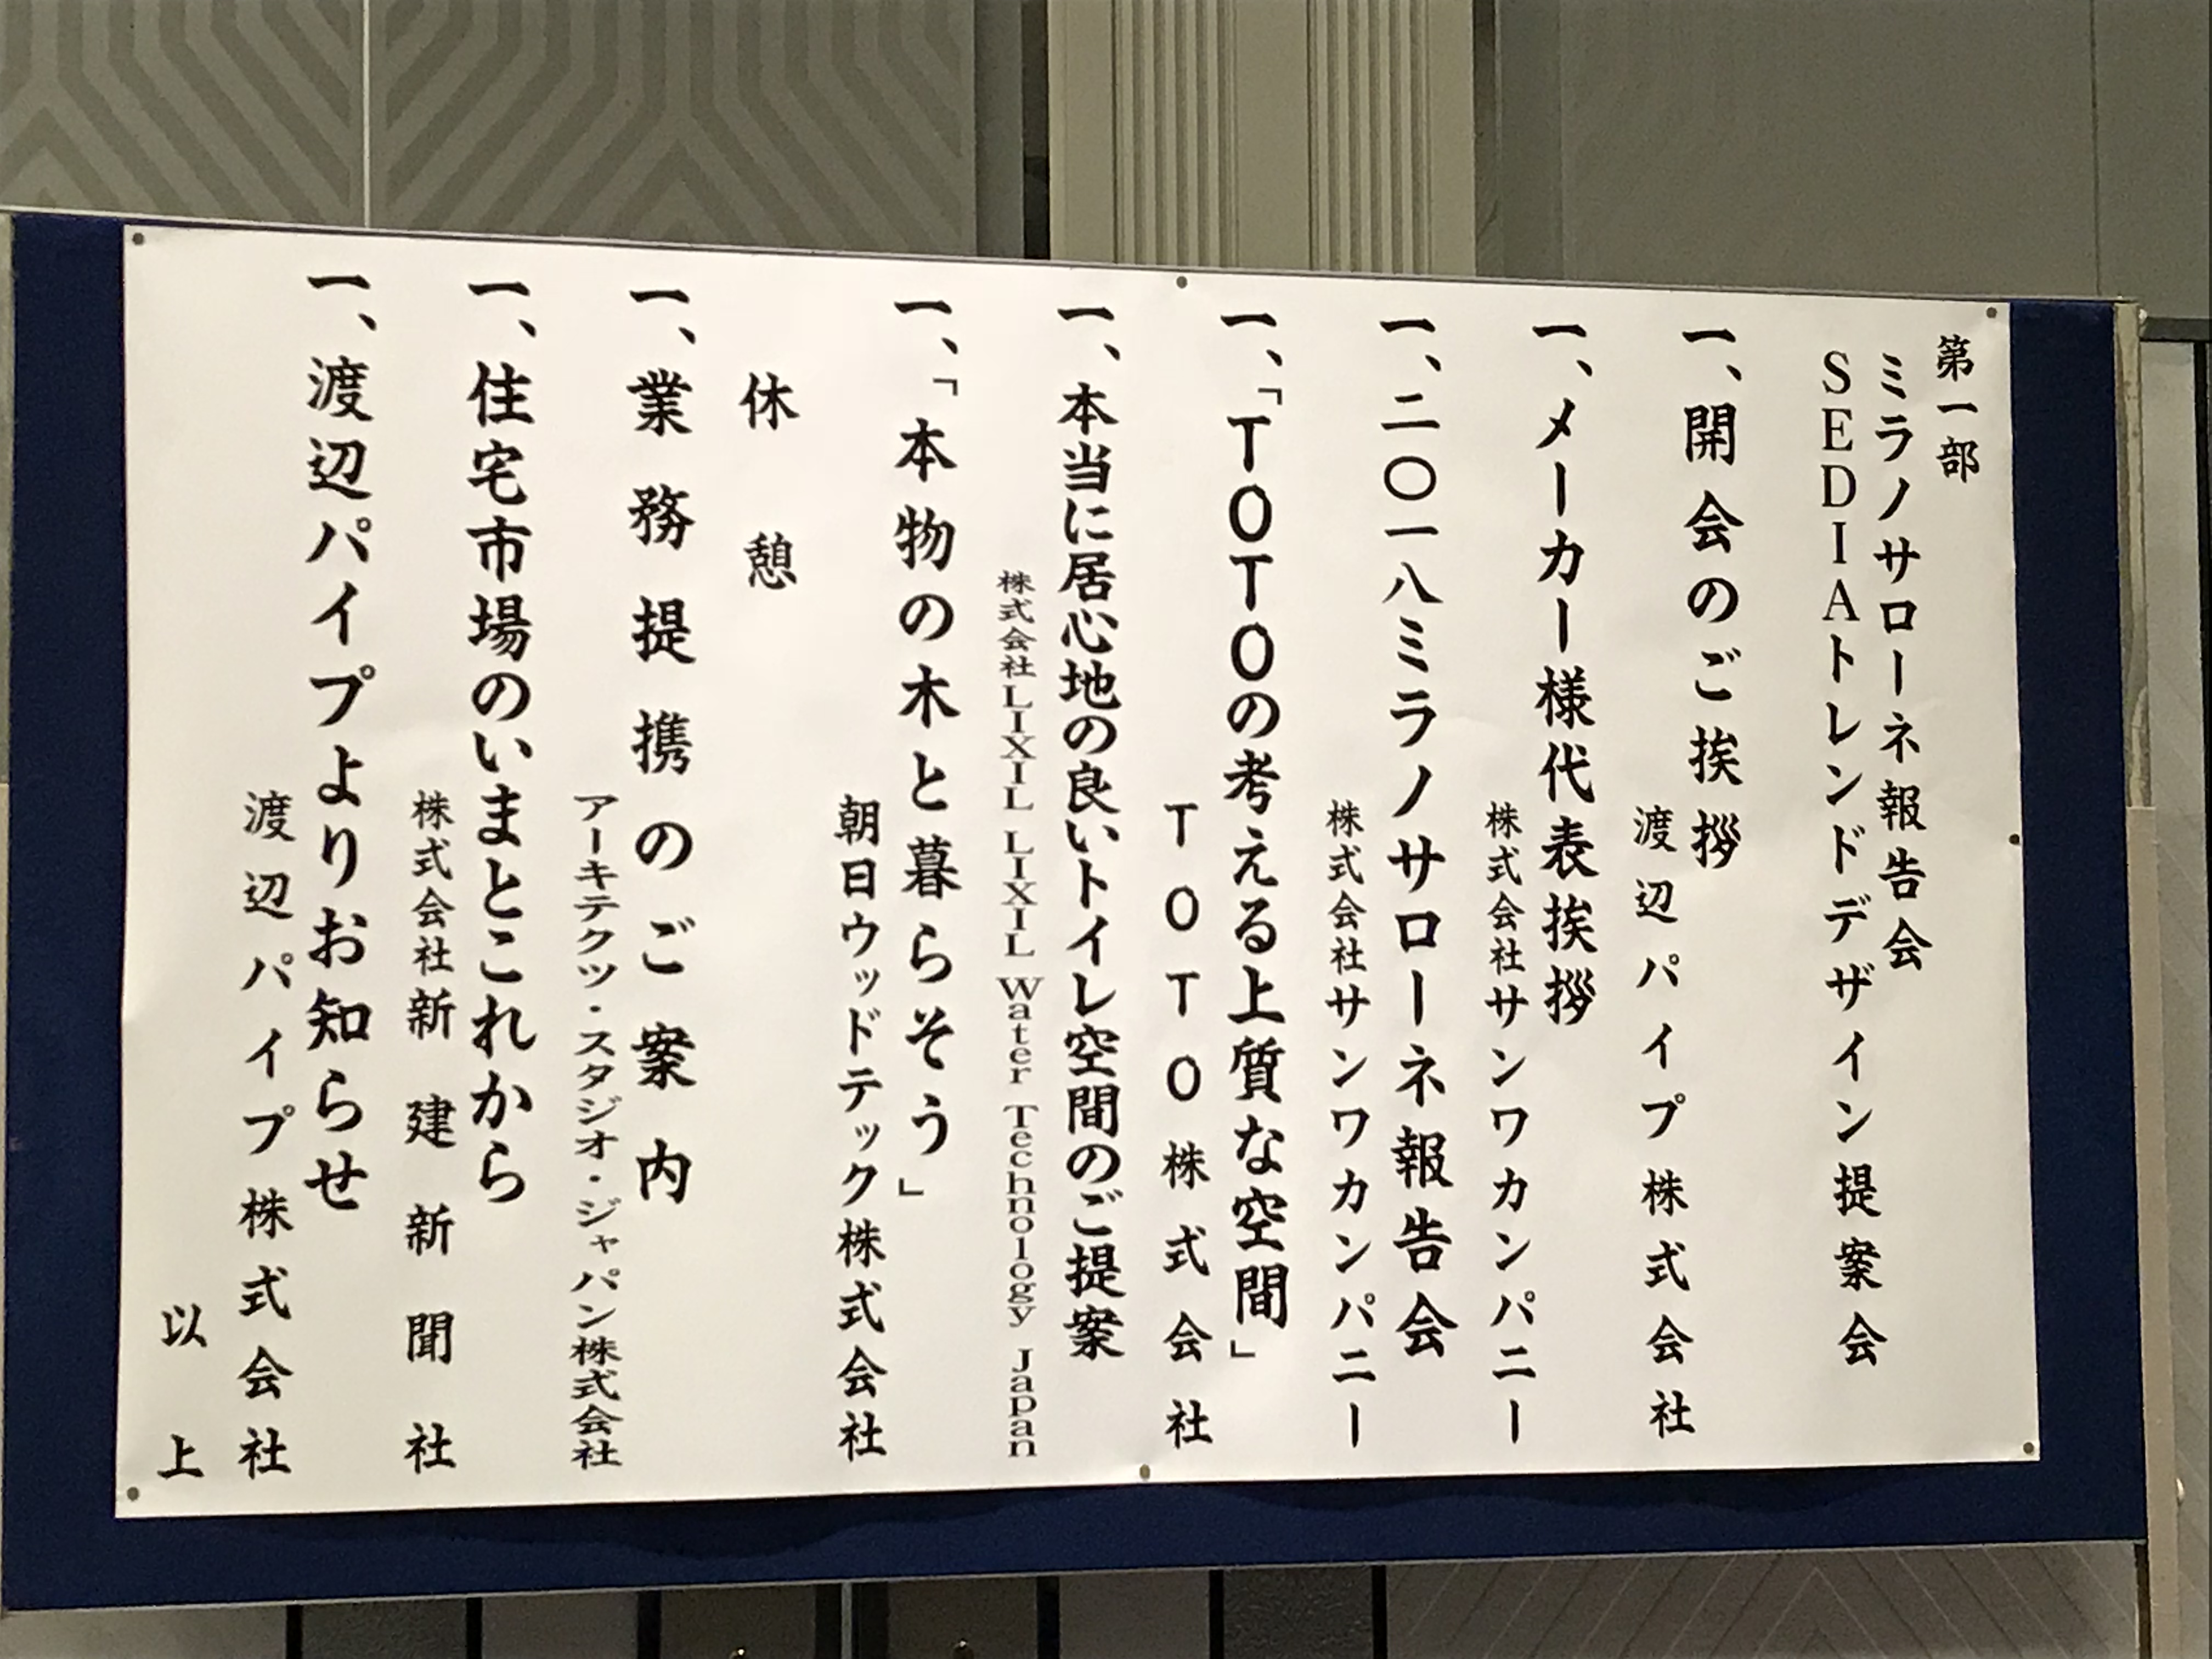 第一部
ミラノサローネ報告会
SEDIAトレンドデザイン提案会
一、開会のご挨拶
渡辺パイプ株式会社
一、メーカー様代表挨拶
株式会社サンワカンパニー
一、二〇一八ミラノサローネ報告会
株式会社サンワカンパニー
一、「TOTOの考える上質な空間」
TOTO株式会社
一、本当に居心地の良いトイレ空間のご提案
株式会社LIXIL LIXIL Water Technology Japan
一、「本物の木と暮らそう」
朝日ウッドテック株式会社
休憩
一、業務提携のご案内
アーキテクツ・スタジオ・ジャパン株式会社
一、住宅市場のいまとこれから
株式会社新建新聞社
一、渡辺パイプよりお知らせ
渡辺パイプ株式会社
以上